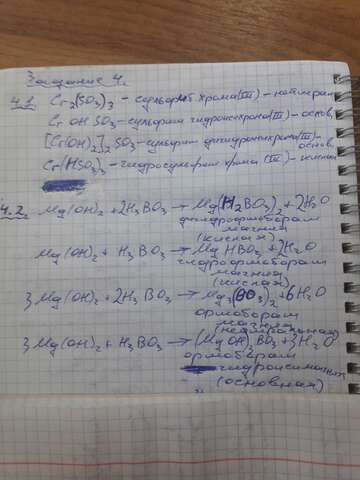 Задание 4.
4.1. Cr₂(SO₃)₃ - сульфит хрома (III) - нейтрал
CrOHSO₃ - сульфит гидроксохрома (III) - основ.
[Cr(OH)₂]₂SO₃ - сульфит дигидроксохрома (III) - основ.
Cr(HSO₃)₃ - гидросульфит хрома (III) - кислая
4.2. Mg(OH)₂ + 2H₃BO₃ → Mg(H₂BO₃)₂ + 2H₂O
дигидроортоборат
магния
(кислая)
Mg(OH)₂ + H₃BO₃ → MgHBO₃ + 2H₂O
гидроортоборат
магния
(кислая)
3Mg(OH)₂ + 2H₃BO₃ → Mg₃(BO₃)₂ + 6H₂O
ортоборат
магния
3Mg(OH)₂ + H₃BO₃ → (MgOH)₃BO₃ + 3H₂O
ортоборат
(основная)